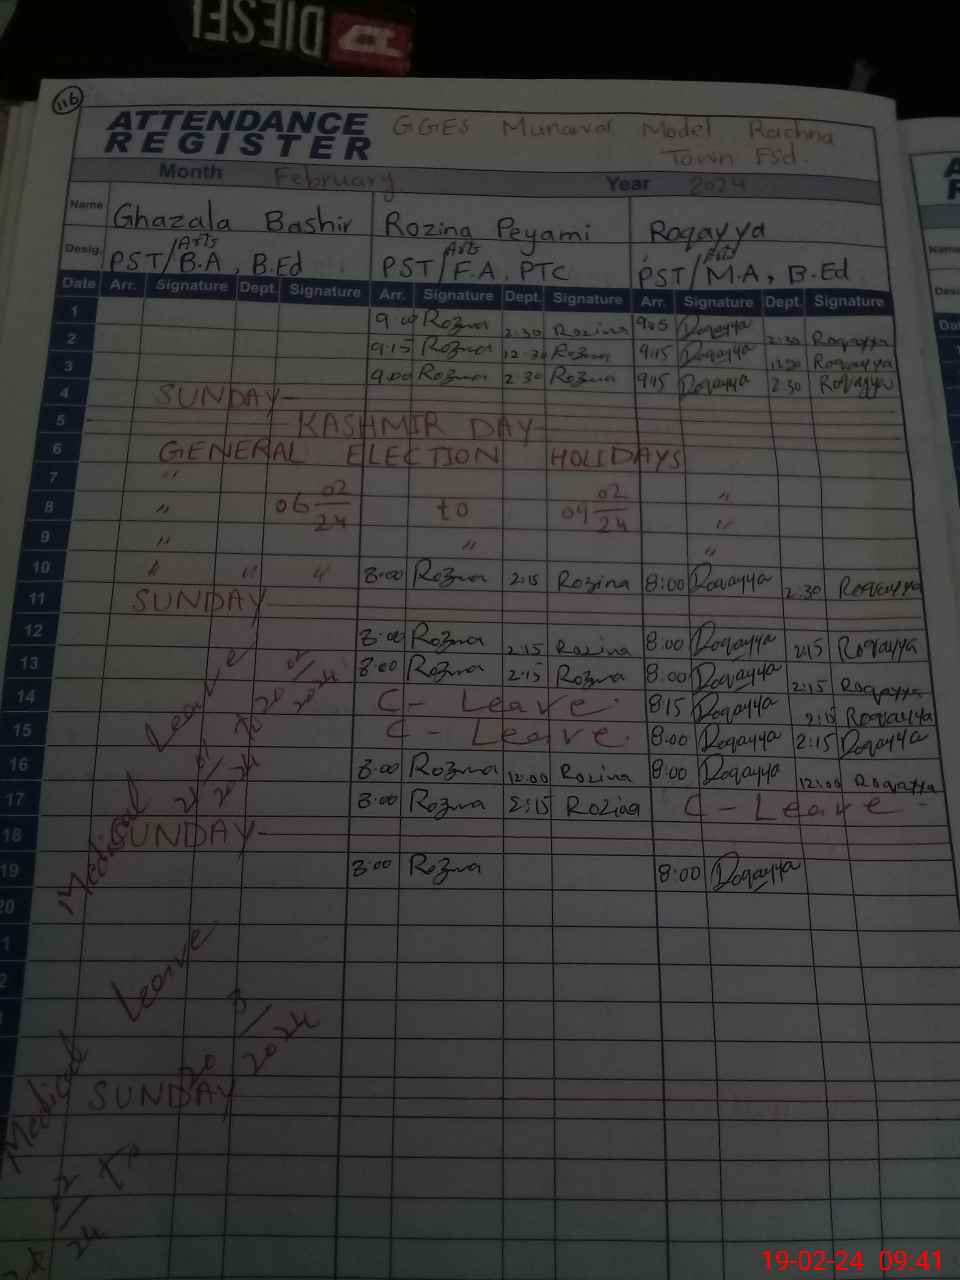 DIESEL
116
ATTENDANCE REGISTER
GGES Munawal Model Rachna Town Fsd.
Month February Year 2024
Name Ghazala Bashir Rozina Peyami Roqayya
Desig. PST/Arts B.A, B.Ed PST/Arts F.A, PTC PST/Arts M.A, B.Ed
Date Arr. Signature Dept. Signature Arr. Signature Dept. Signature Arr. Signature Dept. Signature
1 9:00 Rozina 2:30 Rozina 9:05 Roqayya 2:30 Roqayya
2 9:15 Rozina 12:30 Rozina 9:15 Roqayya 12:30 Roqayya
3 9:00 Rozina 2:30 Rozina 9:15 Roqayya 2:30 Roqayya
4 SUNDAY
5 KASHMIR DAY
6 GENERAL ELECTION HOLIDAYS
7 "
8 " 06 02/24 to 09 02/24 "
9 " " "
10 " " " 8:00 Rozina 2:15 Rozina 8:00 Roqayya 2:30 Roqayya
11 SUNDAY
12 8:00 Rozina 2:15 Rozina 8:00 Roqayya 2:15 Roqayya
13 8:00 Rozina 2:15 Rozina 8:00 Roqayya 2:15 Roqayya
14 C-Leave 8:15 Roqayya 2:15 Roqayya
15 C-Leave. 8:00 Roqayya 2:15 Roqayya
16 8:00 Rozina 12:00 Rozina 8:00 Roqayya 12:00 Roqayya
17 8:00 Rozina 2:15 Rozina C-Leave
18 SUNDAY
19 8:00 Rozina 8:00 Roqayya
20
Medical Leave
2024 to 20 02/2024
Medical Leave
02/24 to 20 3/2024
SUNDAY
19-02-24 09:41